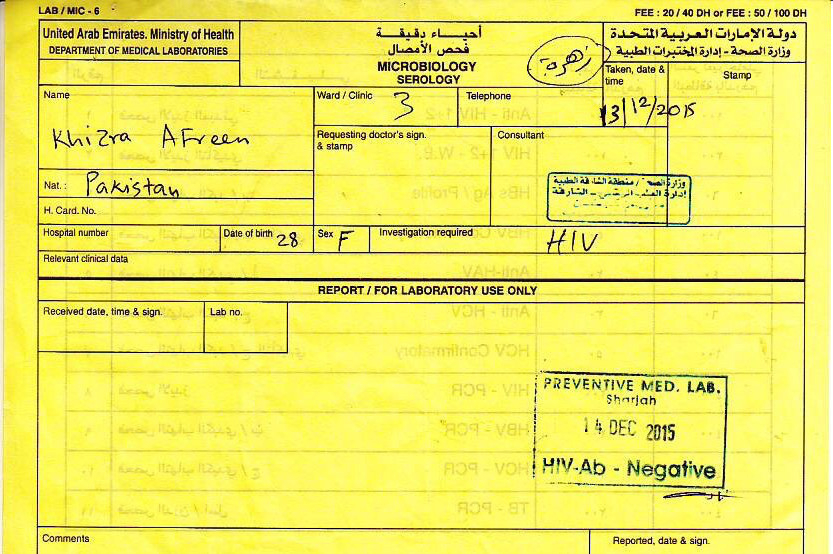 LAB / MIC - 6
FEE : 20 / 40 DH or FEE : 50 / 100 DH
United Arab Emirates. Ministry of Health
DEPARTMENT OF MEDICAL LABORATORIES
أحياء دقيقة
فحص الأمصال
MICROBIOLOGY
SEROLOGY
زهرة
دولة الإمارات العربية المتحدة
وزارة الصحة - إدارة المختبرات الطبية
Taken, date & time
13/12/2015
Stamp
Name
Khizra Afreen
Ward / Clinic
3
Telephone
Requesting doctor's sign. & stamp
Consultant
Nat.: Pakistan
H. Card. No.
وزارة الصحة / منطقة الشارقة الطبية
Hospital number
Date of birth 28
Sex F
Investigation required
HIV
Relevant clinical data
REPORT / FOR LABORATORY USE ONLY
Received date, time & sign.
Lab no.
PREVENTIVE MED. LAB.
Sharjah
14 DEC 2015
HIV-Ab - Negative
Comments
Reported, date & sign.